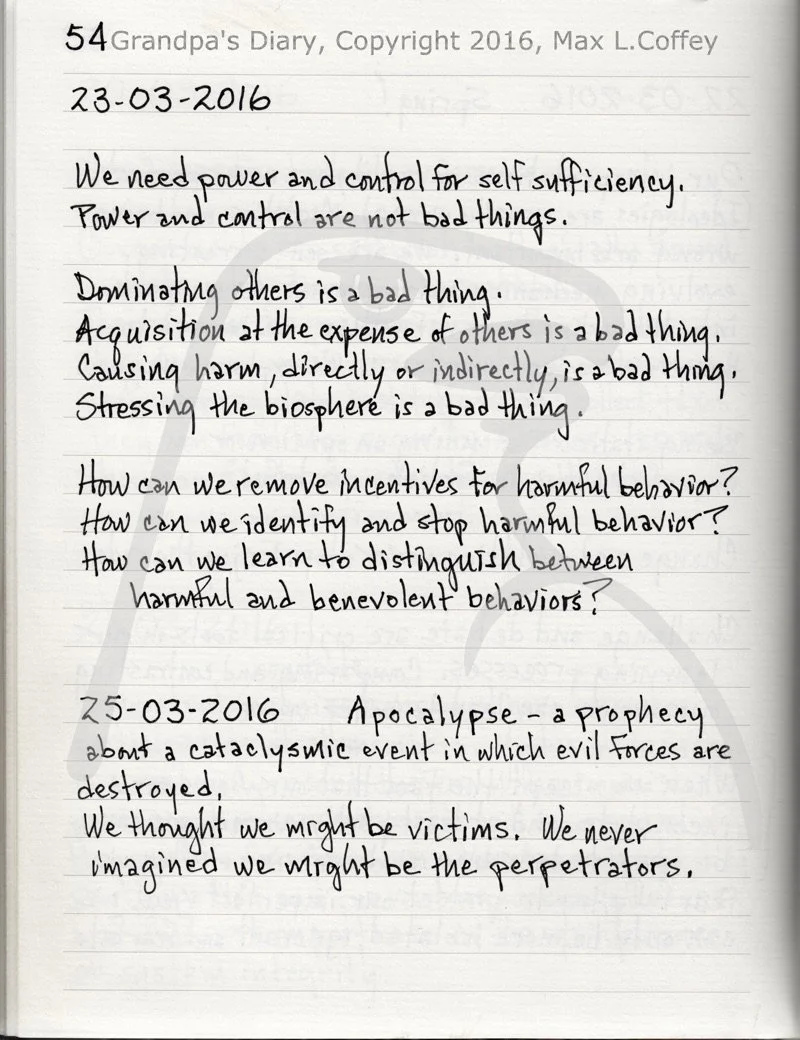 54 Grandpa's Diary, Copyright 2016, Max L.Coffey
23-03-2016
We need power and control for self sufficiency.
Power and control are not bad things.
Dominating others is a bad thing.
Acquisition at the expense of others is a bad thing.
Causing harm, directly or indirectly, is a bad thing.
Stressing the biosphere is a bad thing.
How can we remove incentives for harmful behavior?
How can we identify and stop harmful behavior?
How can we learn to distinguish between
harmful and benevolent behaviors?
25-03-2016 Apocalypse - a prophecy
about a cataclysmic event in which evil forces are
destroyed.
We thought we might be victims. We never
imagined we might be the perpetrators.